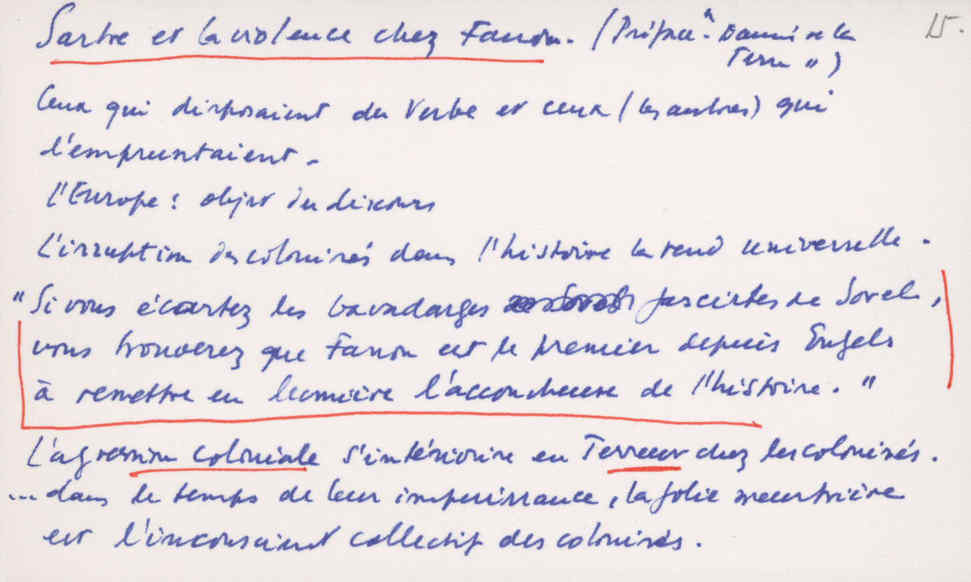 Sartre et la violence chez Fanon. (Préface "Damnés de la
Terre") 15.
Ceux qui disposaient du Verbe et ceux (les autres) qui
l'empruntaient.
l'Europe : objet du discours
L'irruption des colonisés dans l'histoire la rend universelle.
"Si vous écartez les bavardages fascistes de Sorel,
vous trouverez que Fanon est le premier depuis Engels
à remettre en lumière l'accoucheuse de l'histoire."
L'agression coloniale s'intériorise en Terreur chez les colonisés.
...dans le temps de leur impuissance, la folie meurtrière
est l'inconscient collectif des colonisés.